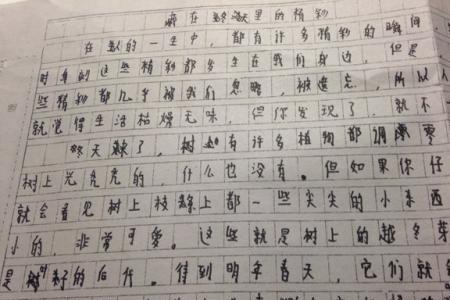 藏在 里的精彩
在 人的一生中，都有许多精彩的瞬间，
时身的这些精彩都发生在我们身边，但是
些精彩都几乎被我们忽略，被遗忘，所以人
就觉得生活枯燥无味，但你发现了，就不
冬天来了，树 有许多植物都凋零
树上光秃秃的，什么也没有。但如果你仔
就会看见树上枝条上都一些尖尖的小东西
小的，非常可爱。这些就是树上的越冬芽
是树籽的后代。待到明年春天，它们就